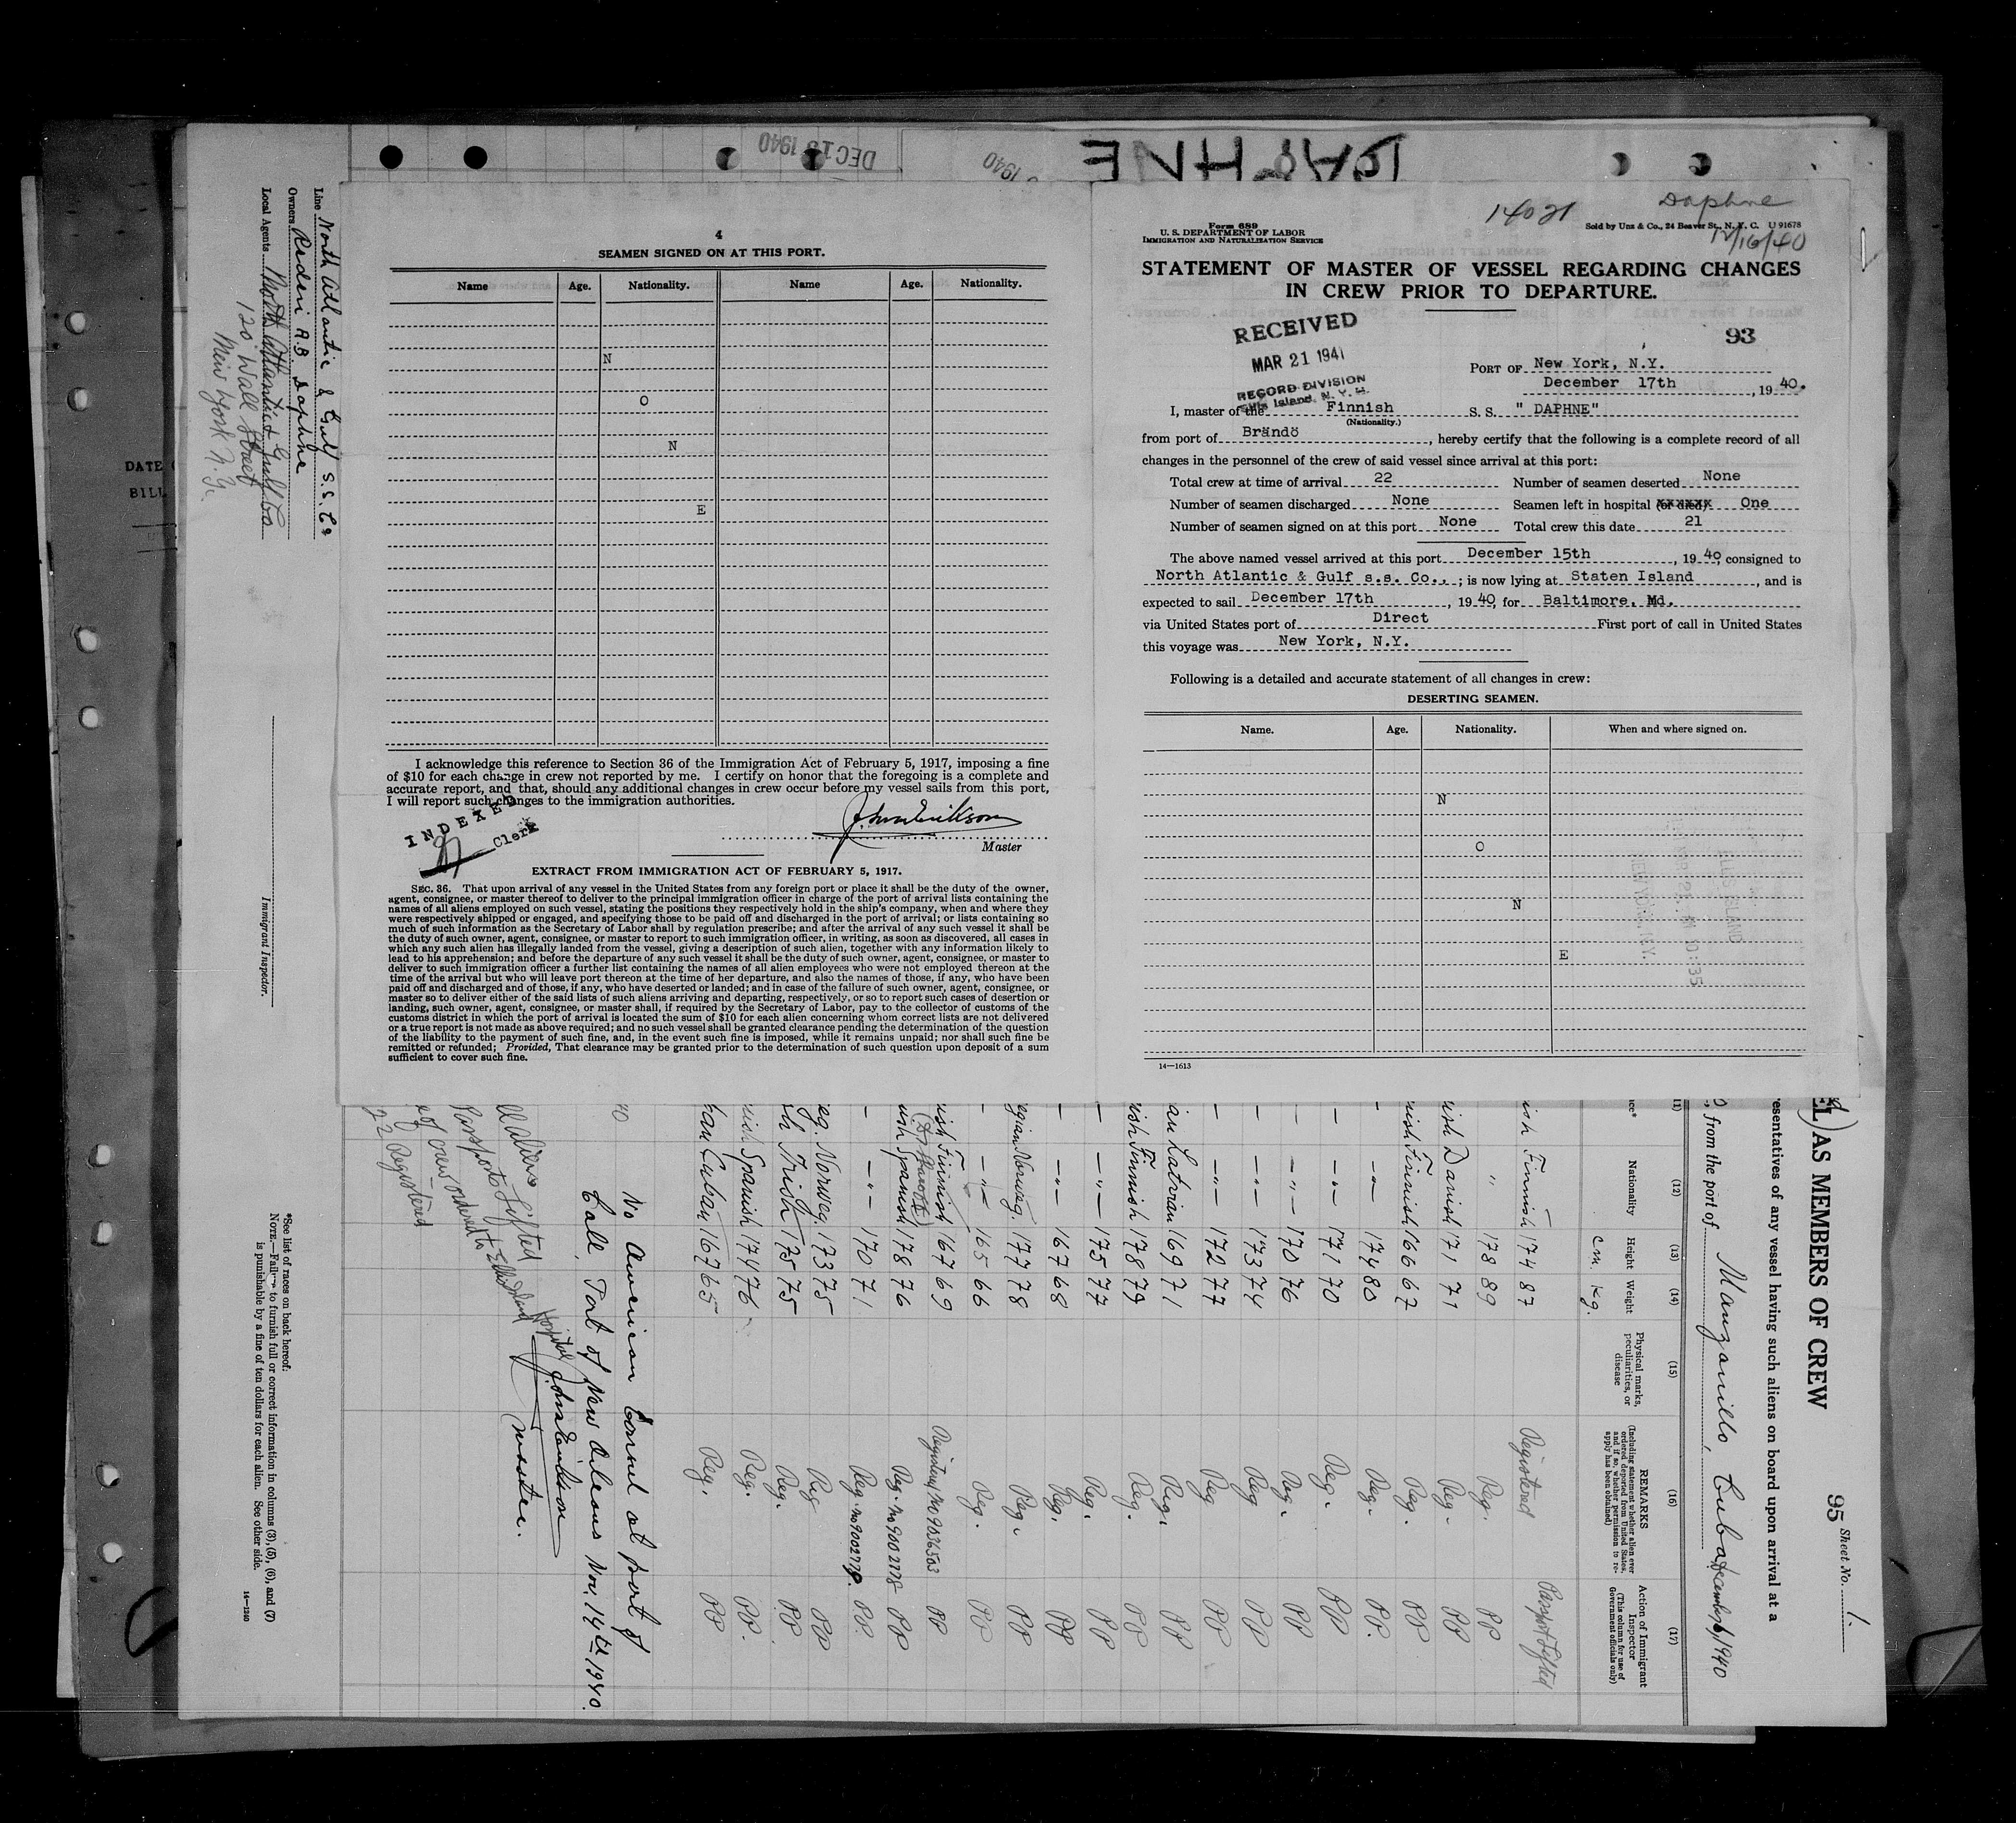 4
SEAMEN SIGNED ON AT THIS PORT.
Name Age. Nationality. Name Age. Nationality.
N
O
N
E
I acknowledge this reference to Section 36 of the Immigration Act of February 5, 1917, imposing a fine
of $10 for each change in crew not reported by me. I certify on honor that the foregoing is a complete and
accurate report, and that, should any additional changes in crew occur before my vessel sails from this port,
I will report such changes to the immigration authorities.
INDEXED
Clerk
Master
EXTRACT FROM IMMIGRATION ACT OF FEBRUARY 5, 1917.
SEC. 36. That upon arrival of any vessel in the United States from any foreign port or place it shall be the duty of the owner,
agent, consignee, or master thereof to deliver to the principal immigration officer in charge of the port of arrival lists containing the
names of all aliens employed on such vessel, stating the positions they respectively hold in the ship's company, when and where they
were respectively shipped or engaged, and specifying those to be paid off and discharged in the port of arrival; or lists containing so
much of such information as the Secretary of Labor shall by regulation prescribe; and after the arrival of any such vessel it shall be
the duty of such owner, agent, consignee, or master to report to such immigration officer, in writing, as soon as discovered, all cases in
which any such alien has illegally landed from the vessel, giving a description of such alien, together with any information likely to
lead to his apprehension; and before the departure of any such vessel it shall be the duty of such owner, agent, consignee, or master to
deliver to such immigration officer a further list containing the names of all alien employees who were not employed thereon at the
time of the arrival but who will leave port thereon at the time of her departure, and also the names of those, if any, who have been
paid off and discharged and of those, if any, who have deserted or landed; and in case of the failure of such owner, agent, consignee, or
master so to deliver either of the said lists of such aliens arriving and departing, respectively, or so to report such cases of desertion or
landing, such owner, agent, consignee, or master shall, if required by the Secretary of Labor, pay to the collector of customs of the
customs district in which the port of arrival is located the sum of $10 for each alien concerning whom correct lists are not delivered
or a true report is not made as above required; and no such vessel shall be granted clearance pending the determination of the question
of the liability to the payment of such fine, and, in the event such fine is imposed, while it remains unpaid; nor shall such fine be
remitted or refunded; Provided, That clearance may be granted prior to the determination of such question upon deposit of a sum
sufficient to cover such fine.
DAPHNE
DEC 1940
1940
14021
Daphne
12/16/40
Form 689
U. S. DEPARTMENT OF LABOR
IMMIGRATION AND NATURALIZATION SERVICE
Sold by Unz & Co., 24 Beaver St., N. Y. C. U 91678
STATEMENT OF MASTER OF VESSEL REGARDING CHANGES
IN CREW PRIOR TO DEPARTURE.
RECEIVED
MAR 21 1941
RECORD DIVISION
Ellis Island, N. Y. H.
93
PORT OF New York, N.Y.
December 17th, 1940.
I, master of the Finnish S. S. " DAPHNE"
(Nationality.)
from port of Brändö, hereby certify that the following is a complete record of all
changes in the personnel of the crew of said vessel since arrival at this port:
Total crew at time of arrival 22 Number of seamen deserted None
Number of seamen discharged None Seamen left in hospital (or died) One
Number of seamen signed on at this port None Total crew this date 21
The above named vessel arrived at this port December 15th, 1940, consigned to
North Atlantic & Gulf s.s. Co., ; is now lying at Staten Island, and is
expected to sail December 17th, 1940, for Baltimore, Md.
via United States port of Direct First port of call in United States
this voyage was New York, N.Y.
Following is a detailed and accurate statement of all changes in crew:
DESERTING SEAMEN.
Name. Age. Nationality. When and where signed on.
N
O
N
E
14—1613
Line North Atlantic & Gulf S.S. Co
Owners Rederi A.B. Daphne
Local Agents North Atlantic & Gulf Co
120 Wall Street
New York N.Y.
Immigrant Inspector.
DATE
BILL
AS MEMBERS OF CREW
95 Sheet No. 1.
resentatives of any vessel having such aliens on board upon arrival at a
from the port of Manzanillo, Cuba, December 6, 1940
(12) Nationality
(13) Height
(14) Weight
cm. kg.
(15) Physical marks, peculiarities, or disease
(16) REMARKS
(Including statement whether alien ever ordered deported from United States, and if so, whether permission to reapply has been obtained)
(17) Action of Immigrant Inspector
(This column for use of Government officials only)
Finnish 174 87 Registered Passport Lifted
" 178 89 Reg. PP
Danish 171 71 Reg. PP
Finnish 166 67 Reg. PP
-"- 174 80 Reg. PP.
-"- 171 70 Reg. PP
-"- 170 76 Reg. PP
-"- 173 74 Reg PP
-"- 172 77 Reg PP
Latvian 169 71 Reg. PP
Finnish 178 79 Reg. PP
-"- 175 77 Reg. PP
-"- 167 68 Reg. PP
Norweg. 177 78 Reg. PP
-"- 165 66 Reg. PP
Finnish 167 69 PP
Spanish 178 76 Reg. No 9002778 PP
-"- 170 71 PP.
Norweg. 173 75 Reg PP
Irish 175 75 Reg. PP
Spanish 174 76 Reg. PP.
Cuban 167 65 Reg. PP
No American Consul at port of
Call, Port of New Orleans Nov. 14th 1940.
Master.
All Aliens
Passports Lifted
of crew ordered to Ellis Island Hospital
22 Registered
*See list of races on back hereof.
NOTE.—Failure to furnish full or correct information in columns (3), (5), (6), and (7)
is punishable by a fine of ten dollars for each alien. See other side.
14—1240